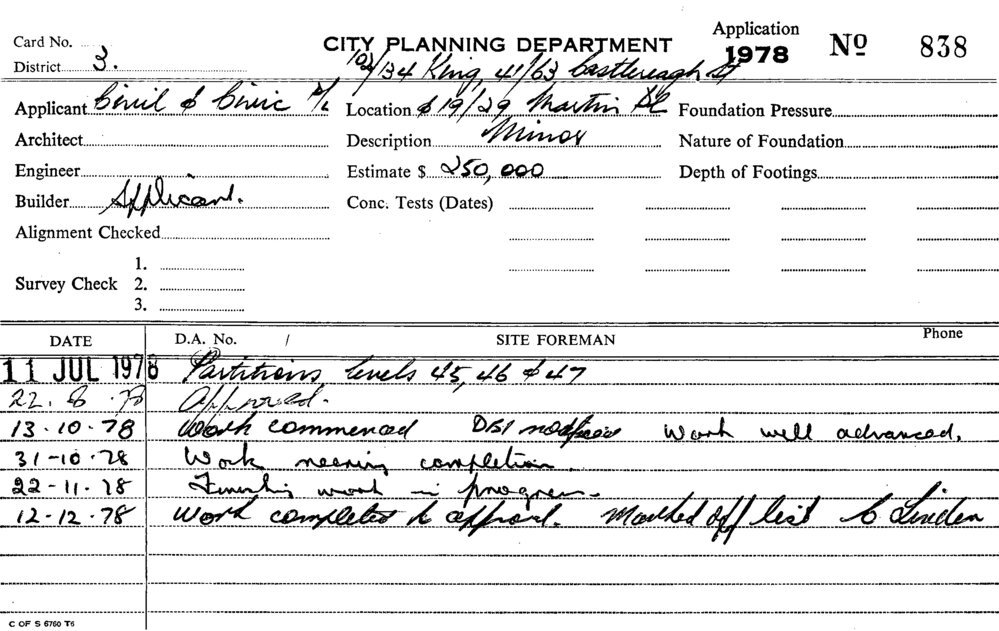 Card No.
District 3.
CITY PLANNING DEPARTMENT
Application 1978 No 838
102/134 King, 41/63 Castlereagh St
Applicant Civil & Civic P/L Location & 19/29 Martin Pl Foundation Pressure
Architect Description Minor Nature of Foundation
Engineer Estimate $ 250,000 Depth of Footings
Builder Applicant. Conc. Tests (Dates)
Alignment Checked
1.
Survey Check 2.
3.
DATE D.A. No. / SITE FOREMAN Phone
11 JUL 1978 Partitions levels 45, 46 & 47
22. 8 .78 Approved.
13-10-78 Work commenced Work well advanced.
31-10-78 Work nearing completion.
22-11-78 Finishing work in progress.
12-12-78 Work completed to approval. Marked off list
C OF S 6760 T6